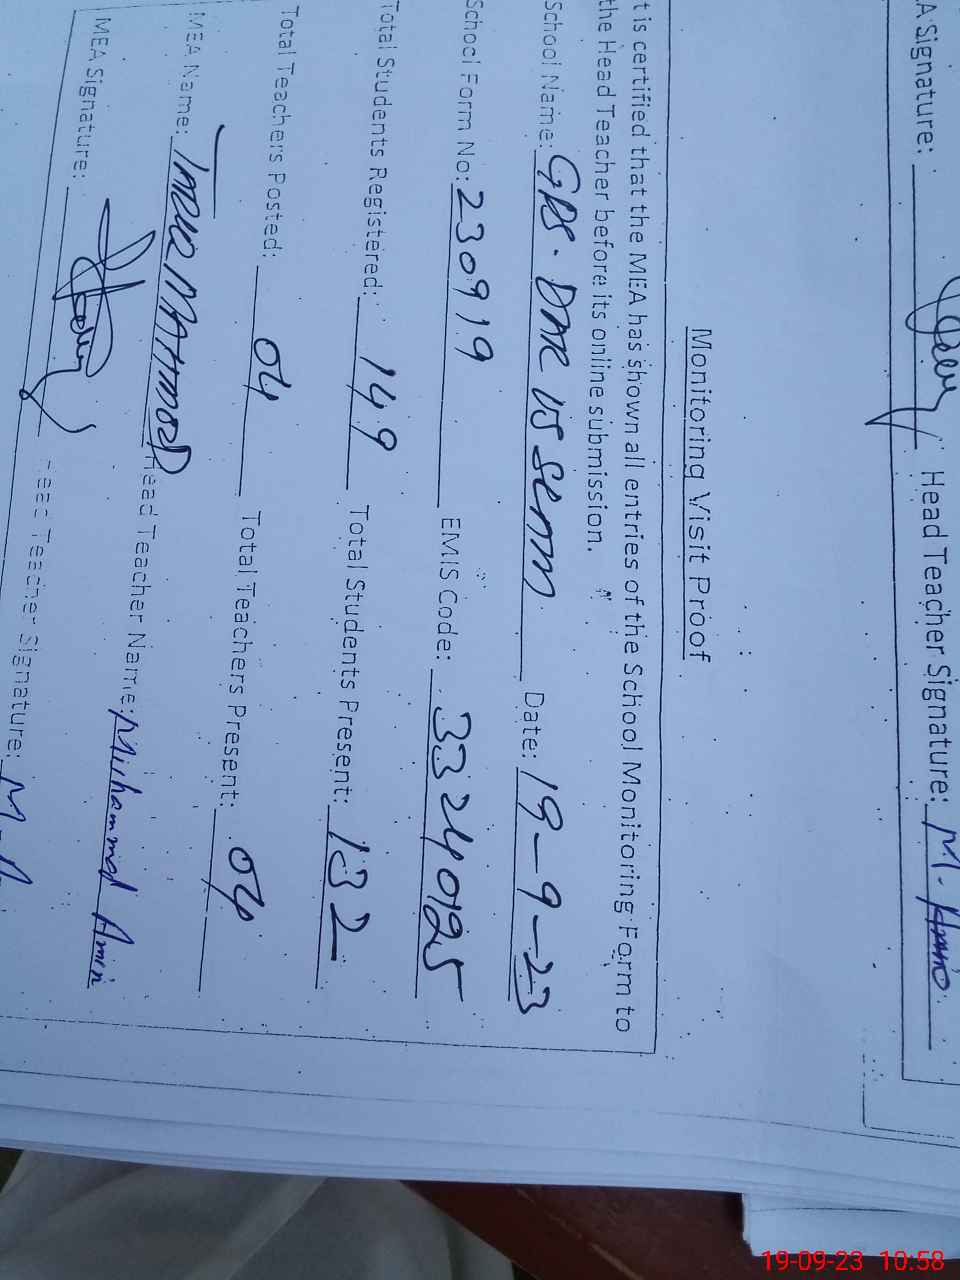 A Signature: Head Teacher Signature: M. Amin
Monitoring Visit Proof
t is certified that the MEA has shown all entries of the School Monitoring Form to
the Head Teacher before its online submission.
School Name: GPS. DAR Date: 19-9-23
School Form No: 230919 EMIS Code: 33240125
Total Students Registered: 149 Total Students Present: 132
Total Teachers Posted: 04 Total Teachers Present: 04
MEA Name: MAHMOOD Head Teacher Name: Muhammad Amin
MEA Signature: Head Teacher Signature: M.A
19-09-23 10:58